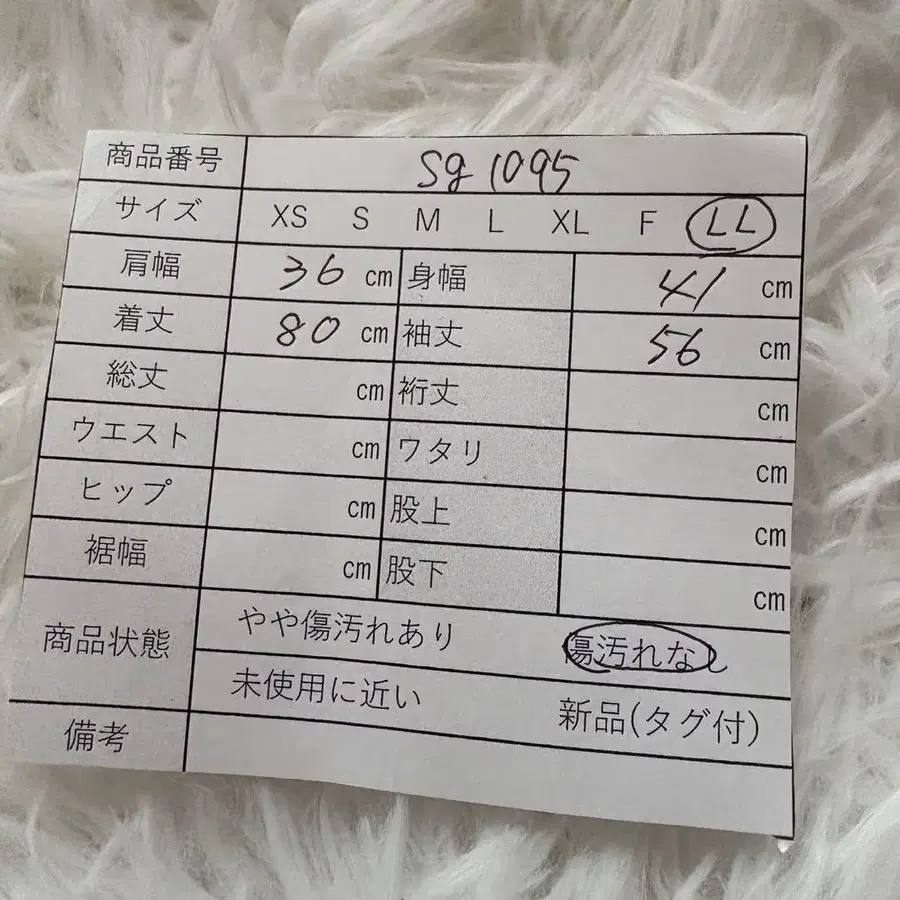 商品番号 Sg 1095
サイズ XS S M L XL F LL
肩幅 36 cm 身幅 41 cm
着丈 80 cm 袖丈 56 cm
総丈 cm 裄丈 cm
ウエスト cm ワタリ cm
ヒップ cm 股上 cm
裾幅 cm 股下 cm
商品状態 やや傷汚れあり 傷汚れなし
未使用に近い 新品(タグ付)
備考